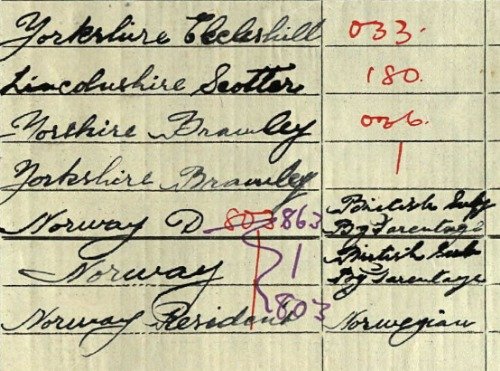 Yorkshire Eccleshill 033.
Lincolnshire Scotter 180.
Yorshire Bramley 026.
Yorkshire Bramley 1
Norway D 803 863 British Subj
By Parentage
Norway 1 British Sub
By Parentage
Norway Resident 803 Norwegian